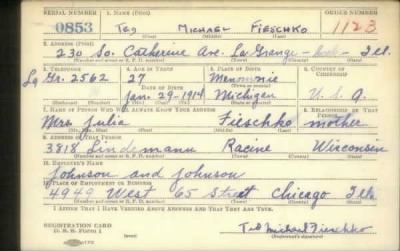 SERIAL NUMBER 1. NAME (Print) ORDER NUMBER
0853 Ted Michael Fieschko 1123
(First) (Middle) (Last)
2. ADDRESS (Print)
230 So. Catherine Ave. La Grange - Cook - Ill.
(Number and street or R. F. D. number) (Town) (County) (State)
3. TELEPHONE 4. AGE IN YEARS 5. PLACE OF BIRTH 6. COUNTRY OF CITIZENSHIP
La Gr. 2562 27 Menominie
DATE OF BIRTH
Jan. 29-1914 Michigan U.S.A.
(Mo.) (Day) (Yr.) (State or country)
7. NAME OF PERSON WHO WILL ALWAYS KNOW YOUR ADDRESS 8. RELATIONSHIP OF THAT PERSON
Mrs. Julia Fieschko mother
(Mr., Mrs., Miss) (First) (Middle) (Last)
9. ADDRESS OF THAT PERSON
3818 Lindemann Racine Wisconsin
(Number and street or R. F. D. number) (Town) (County) (State)
10. EMPLOYER'S NAME
Johnson and Johnson
11. PLACE OF EMPLOYMENT OR BUSINESS
4949 West 65 Street Chicago Ill.
(Number and street or R. F. D. number) (Town) (County) (State)
I AFFIRM THAT I HAVE VERIFIED ABOVE ANSWERS AND THAT THEY ARE TRUE.
REGISTRATION CARD
D. S. S. Form 1
Ted Michael Fieschko
(Registrant's signature)